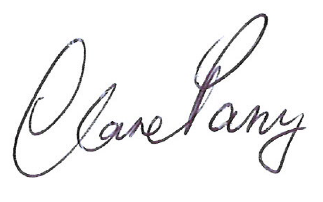 Clare Parry